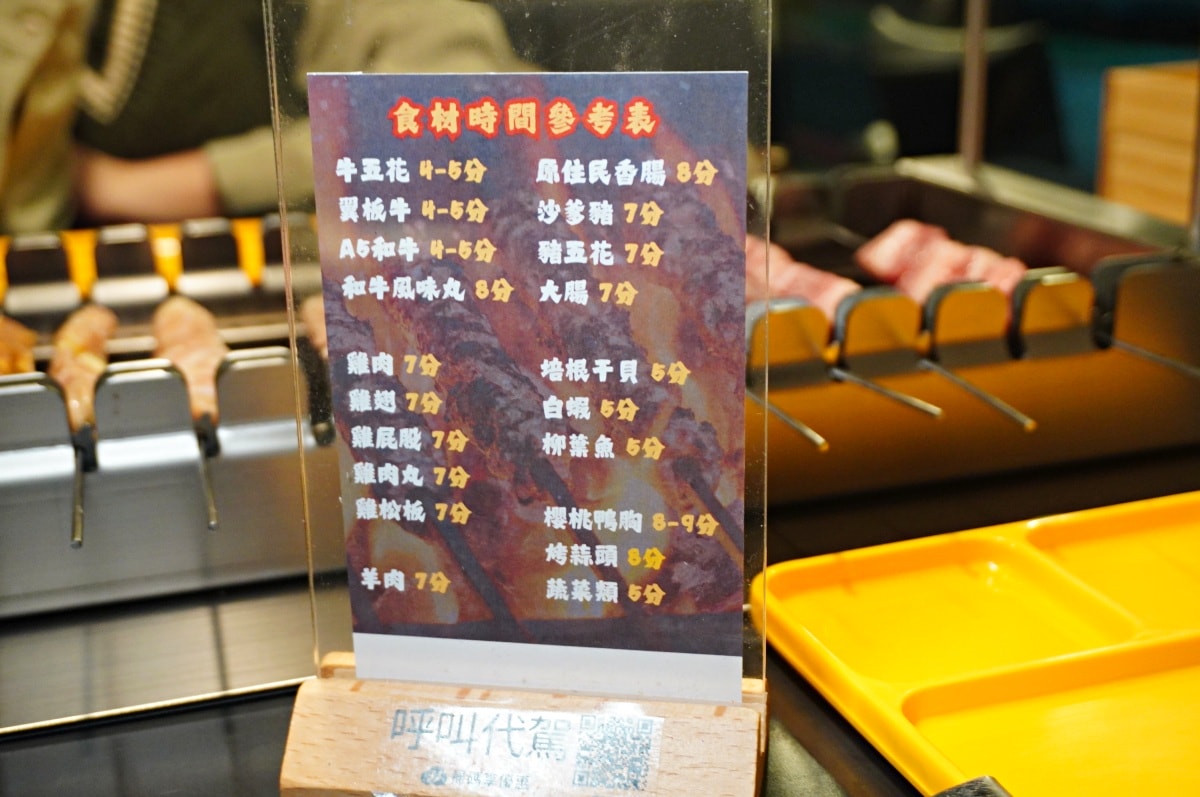 食材時間參考表
牛五花 4-5分
翼板牛 4-5分
A5和牛 4-5分
和牛風味丸 8分
雞肉 7分
雞翅 7分
雞屁股 7分
雞肉丸 7分
雞松板 7分
羊肉 7分
原住民香腸 8分
沙爹豬 7分
豬五花 7分
大腸 7分
培根干貝 5分
白蝦 5分
柳葉魚 5分
櫻桃鴨胸 8-9分
烤蒜頭 8分
蔬菜類 5分
呼叫代駕